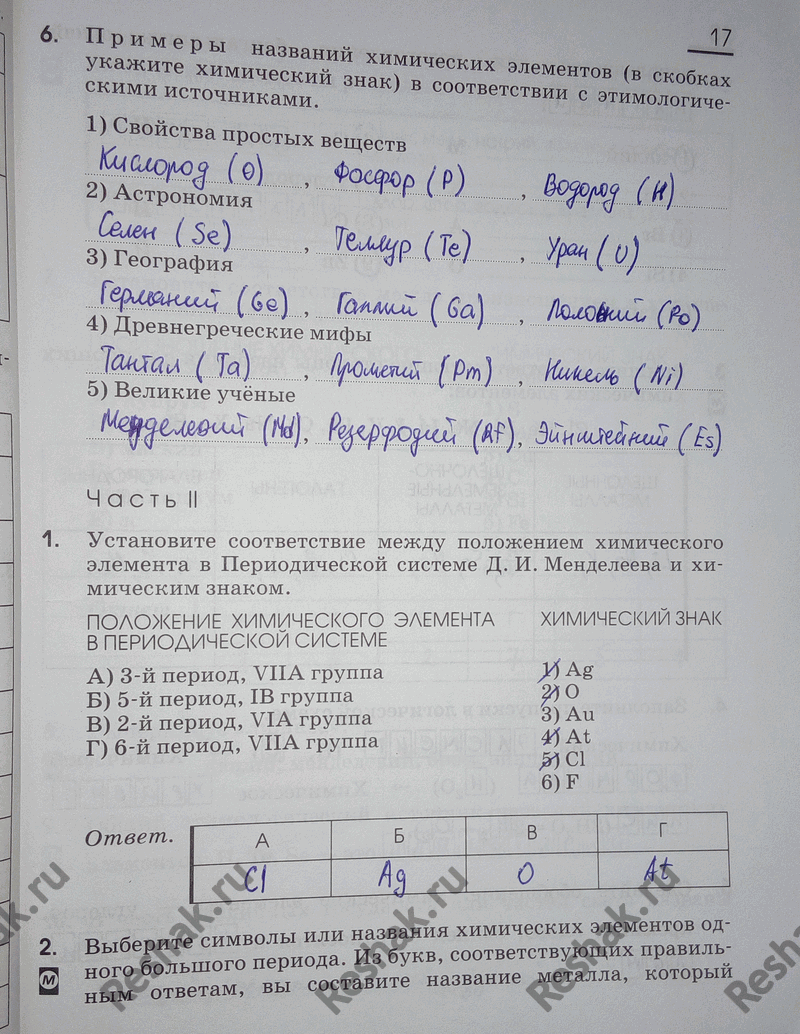 17
6. Примеры названий химических элементов (в скобках
укажите химический знак) в соответствии с этимологиче-
скими источниками.
1) Свойства простых веществ
Кислород (O), Фосфор (P), Водород (H)
2) Астрономия
Селен (Se), Теллур (Te), Уран (U)
3) География
Германий (Ge), Галлий (Ga), Полоний (Po)
4) Древнегреческие мифы
Тантал (Ta), Прометий (Pm), Никель (Ni)
5) Великие учёные
Менделевий (Md), Резерфодий (Rf), Эйнштейний (Es)
Часть II
1. Установите соответствие между положением химического
элемента в Периодической системе Д. И. Менделеева и хи-
мическим знаком.
ПОЛОЖЕНИЕ ХИМИЧЕСКОГО ЭЛЕМЕНТА
В ПЕРИОДИЧЕСКОЙ СИСТЕМЕ
ХИМИЧЕСКИЙ ЗНАК
А) 3-й период, VIIA группа
Б) 5-й период, IB группа
В) 2-й период, VIA группа
Г) 6-й период, VIIA группа
1) Ag
2) O
3) Au
4) At
5) Cl
6) F
Ответ.
А Б В Г
Cl Ag O At
2. Выберите символы или названия химических элементов од-
М ного большого периода. Из букв, соответствующих правиль-
ным ответам, вы составите название металла, который
Reshak.ru
Reshak.ru
Reshak.ru